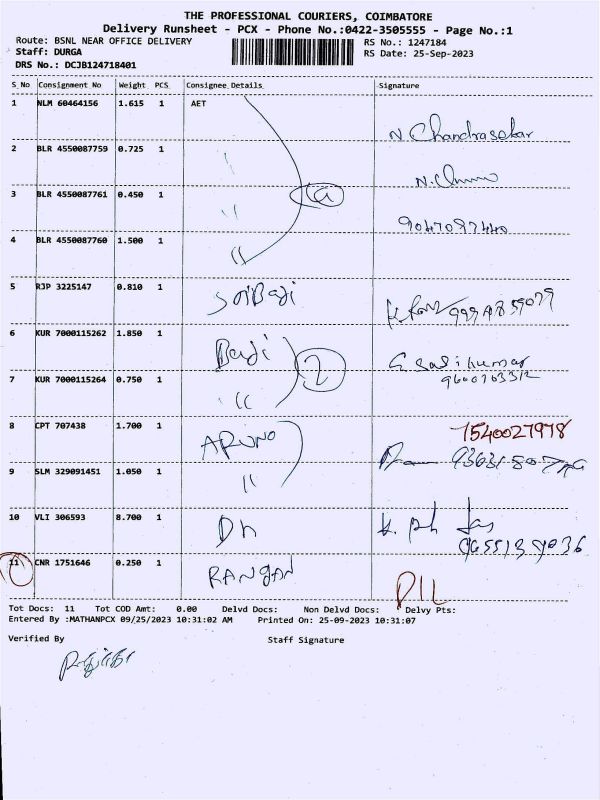 THE PROFESSIONAL COURIERS, COIMBATORE
Delivery Runsheet - PCX - Phone No.:0422-3505555 - Page No.:1
Route: BSNL NEAR OFFICE DELIVERY RS No.: 1247184
Staff: DURGA RS Date: 25-Sep-2023
DRS No.: DCJB124718401
S_No Consignment No Weight PCS Consignee Details Signature
1 NLM 60464156 1.615 1 AET
N Chandrasekar
2 BLR 4550087759 0.725 1 "
3 BLR 4550087761 0.450 1 "
4 BLR 4550087760 1.500 1 "
5 RJP 3225147 0.810 1
6 KUR 7000115262 1.850 1
7 KUR 7000115264 0.750 1 "
8 CPT 707438 1.700 1 7540027978
9 SLM 329091451 1.050 1 "
10 VLI 306593 8.700 1
11 CNR 1751646 0.250 1 RANGAN
Tot Docs: 11 Tot COD Amt: 0.00 Delvd Docs: Non Delvd Docs: Delvy Pts:
Entered By :MATHANPCX 09/25/2023 10:31:02 AM Printed On: 25-09-2023 10:31:07
Verified By Staff Signature